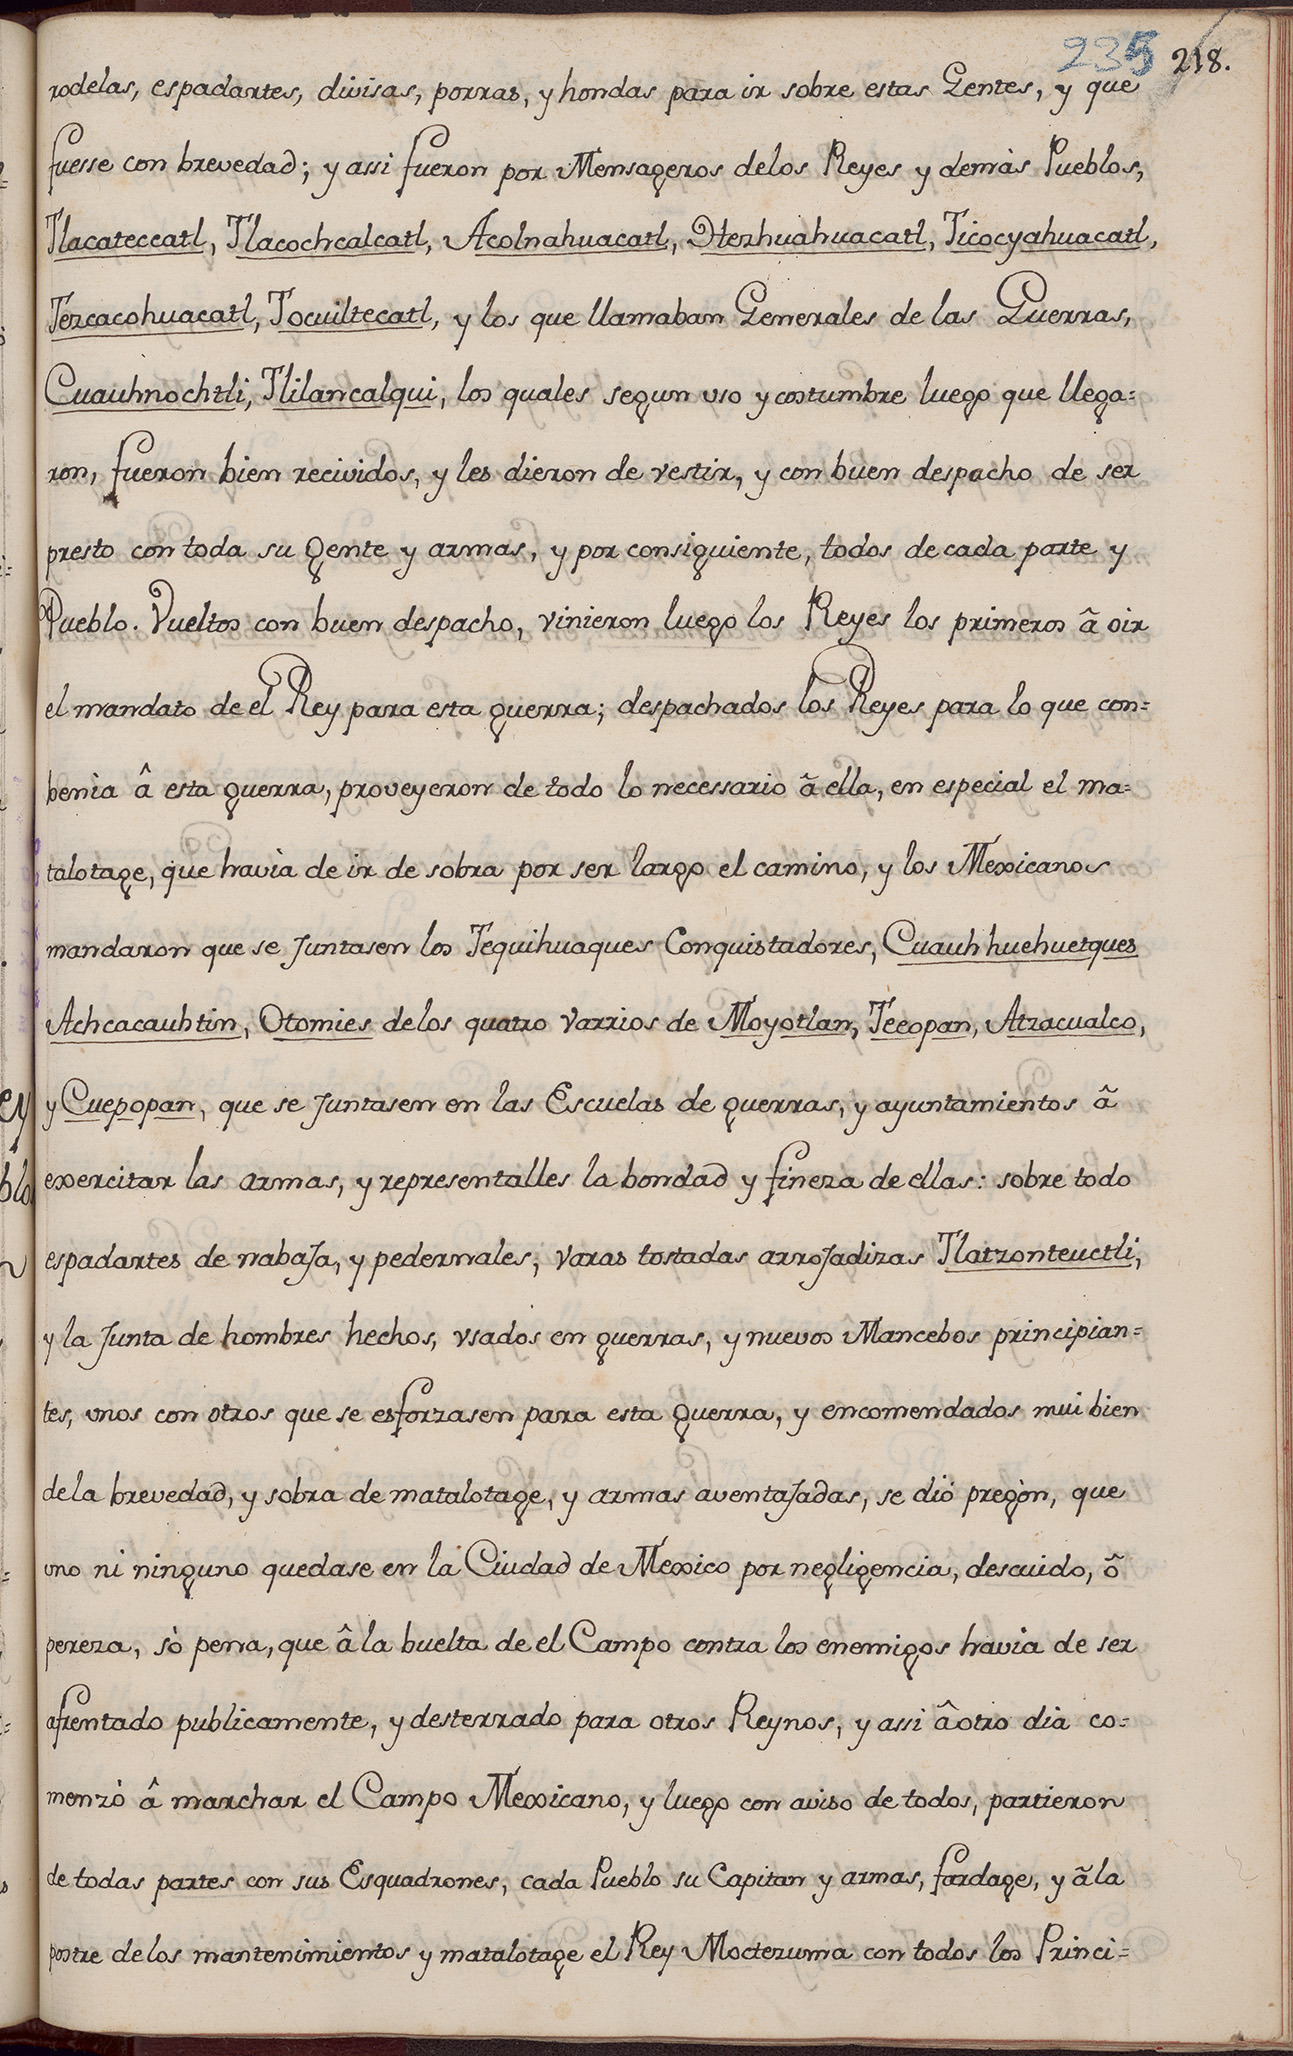 235 218.
rodelas, espadartes, divisas, porras, y hondas para ir sobre estas Gentes, y que
fuesse con brevedad; y assi fueron por Mensageros delos Reyes y demàs Pueblos,
Tlacateccatl, Tlacochcalcatl, Acolnahuacatl, Hezhuahuacatl, Ticocyahuacatl,
Tezcacohuacatl, Tocuiltecatl, y los que llamaban Generales de las Guerras,
Cuauhnochtli, Tlilancalqui, los quales segun uso y costumbre luego que llega=
ron, fueron bien recividos, y les dieron de vestir, y con buen despacho de ser
presto con toda su gente y armas, y por consiguiente, todos de cada parte y
Pueblo. Vueltos con buen despacho, vinieron luego los Reyes los primeros â oir
el mandato de el Rey para esta guerra; despachados los Reyes para lo que con=
benia â esta guerra, proveyeron de todo lo necessario â ella, en especial el ma=
talotage, que havia de ir de sobra por ser largo el camino, y los Mexicanos
mandaron que se Juntasen los Tequihuaques Conquistadores, Cuauhhuehuetques
Achcacauhtin, Otomies delos quatro Varrios de Moyotlan, Teeopan, Atzacualco,
y Cuepopan, que se Juntasen en las Escuelas de guerras, y ayuntamientos â
exercitar las armas, y representalles la bondad y fineza de ellas: sobre todo
espadartes de nabaJa, y pedernales, varas tostadas arroJadizas Tlatzonteuctli,
y la Junta de hombres hechos, vsados en guerras, y nuevos Mancebos principian=
tes, unos con otros que se esforzasen para esta guerra, y encomendados mui bien
dela brevedad, y sobra de matalotage, y armas aventaJadas, se diò pregòn, que
uno ni ninguno quedase en la Ciudad de Mexico por negligencia, descuido, ô
pereza, sò pena, que â la buelta de el Campo contra los enemigos havia de ser
afrentado publicamente, y desterrado para otros Reynos, y assi â otro dia co=
menzò â marchar el Campo Mexicano, y luego con aviso de todos, partieron
de todas partes con sus Esquadrones, cada Pueblo su Capitan y armas, fardage, y â la
postre delos mantenimientos y matalotage el Rey Moctezuma con todos los Princi=